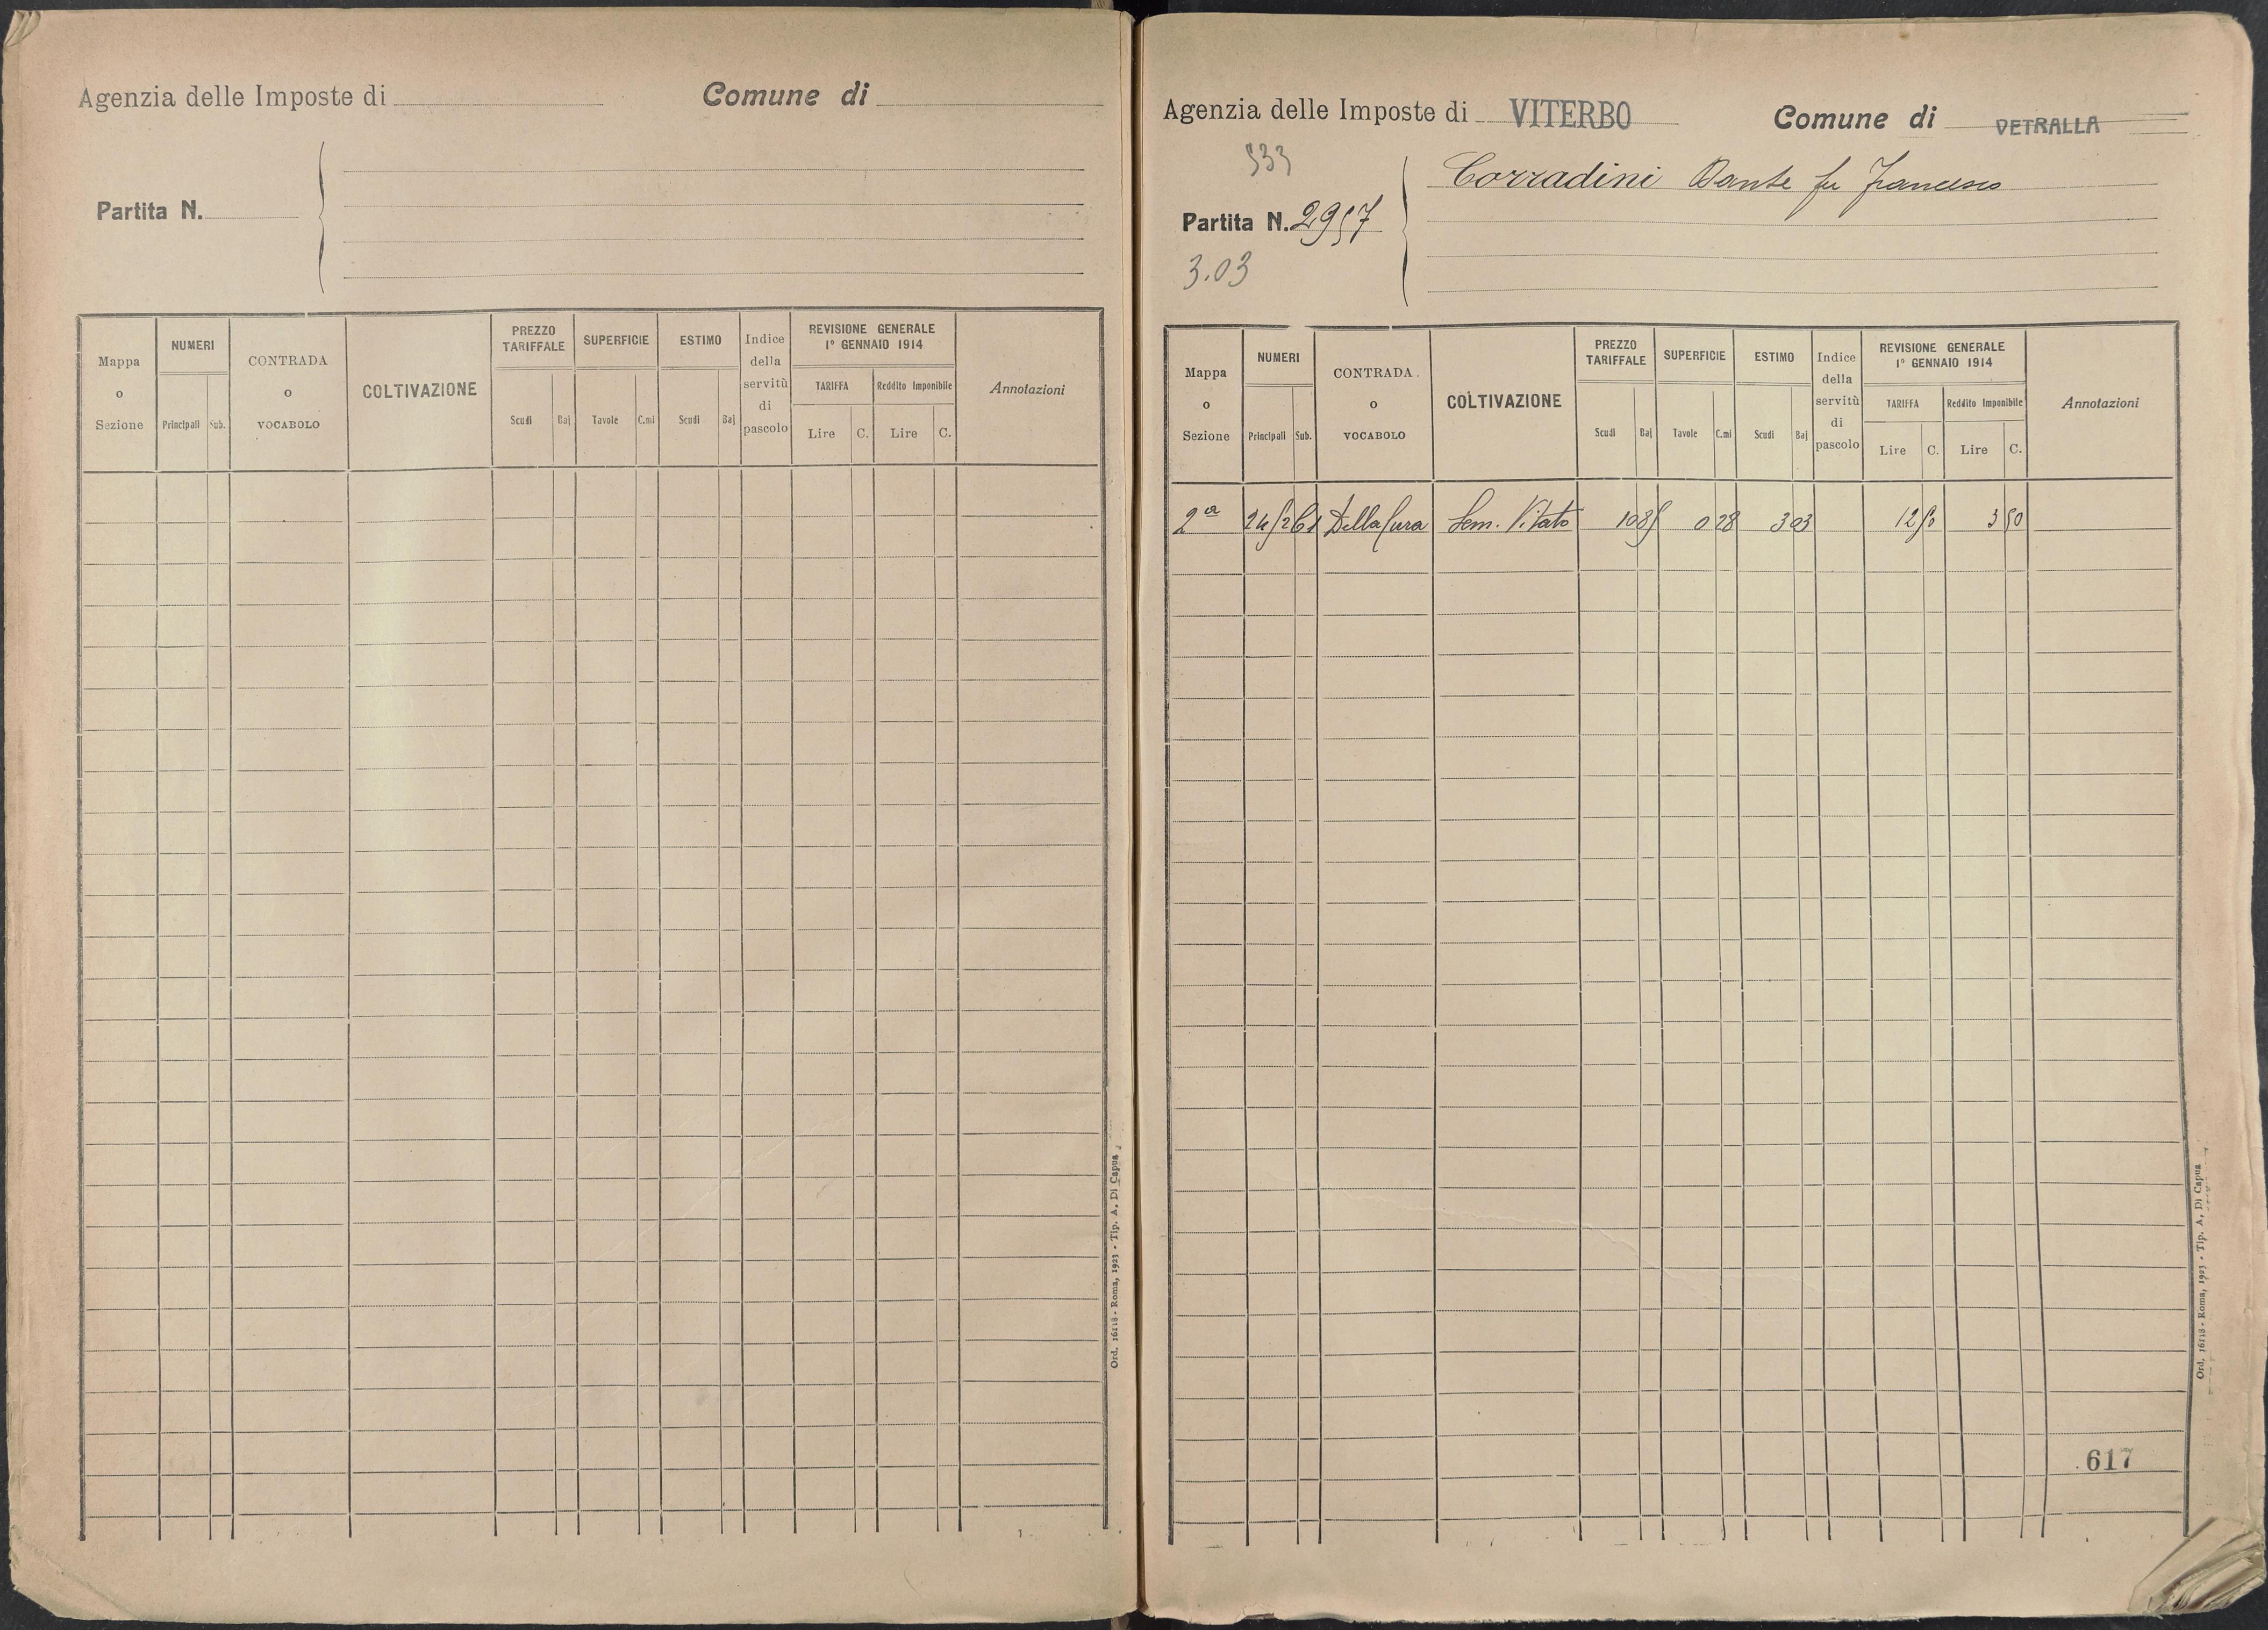 Agenzia delle Imposte di
Comune di
Partita N.
Mappa o Sezione
NUMERI
Principali
Sub.
CONTRADA o VOCABOLO
COLTIVAZIONE
PREZZO TARIFFALE
Scudi
Baj
SUPERFICIE
Tavole
C.mi
ESTIMO
Scudi
Baj
Indice della servitù di pascolo
REVISIONE GENERALE
1° GENNAIO 1914
TARIFFA
Reddito Imponibile
Lire
C.
Lire
C.
Annotazioni
Ord. 16118 - Roma, 1923 - Tip. A. Di Capua
Agenzia delle Imposte di VITERBO
Comune di VETRALLA
533
Corradini Dante fu Francesco
Partita N. 2957
3.03
Mappa o Sezione
NUMERI
Principali
Sub.
CONTRADA o VOCABOLO
COLTIVAZIONE
PREZZO TARIFFALE
Scudi
Baj
SUPERFICIE
Tavole
C.mi
ESTIMO
Scudi
Baj
Indice della servitù di pascolo
REVISIONE GENERALE
1° GENNAIO 1914
TARIFFA
Reddito Imponibile
Lire
C.
Lire
C.
Annotazioni
2a Della Cura Sem. Vitato 10 85 0 28 3 03 12 50 3 50
617
Ord. 16118 - Roma, 1923 - Tip. A. Di Capua